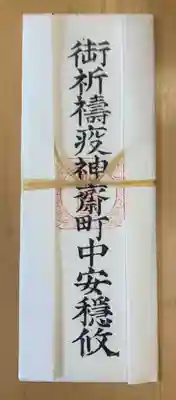 御祈禱疫神齋町中安穩攸